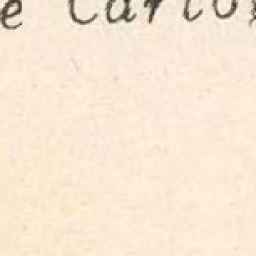 e Carlo